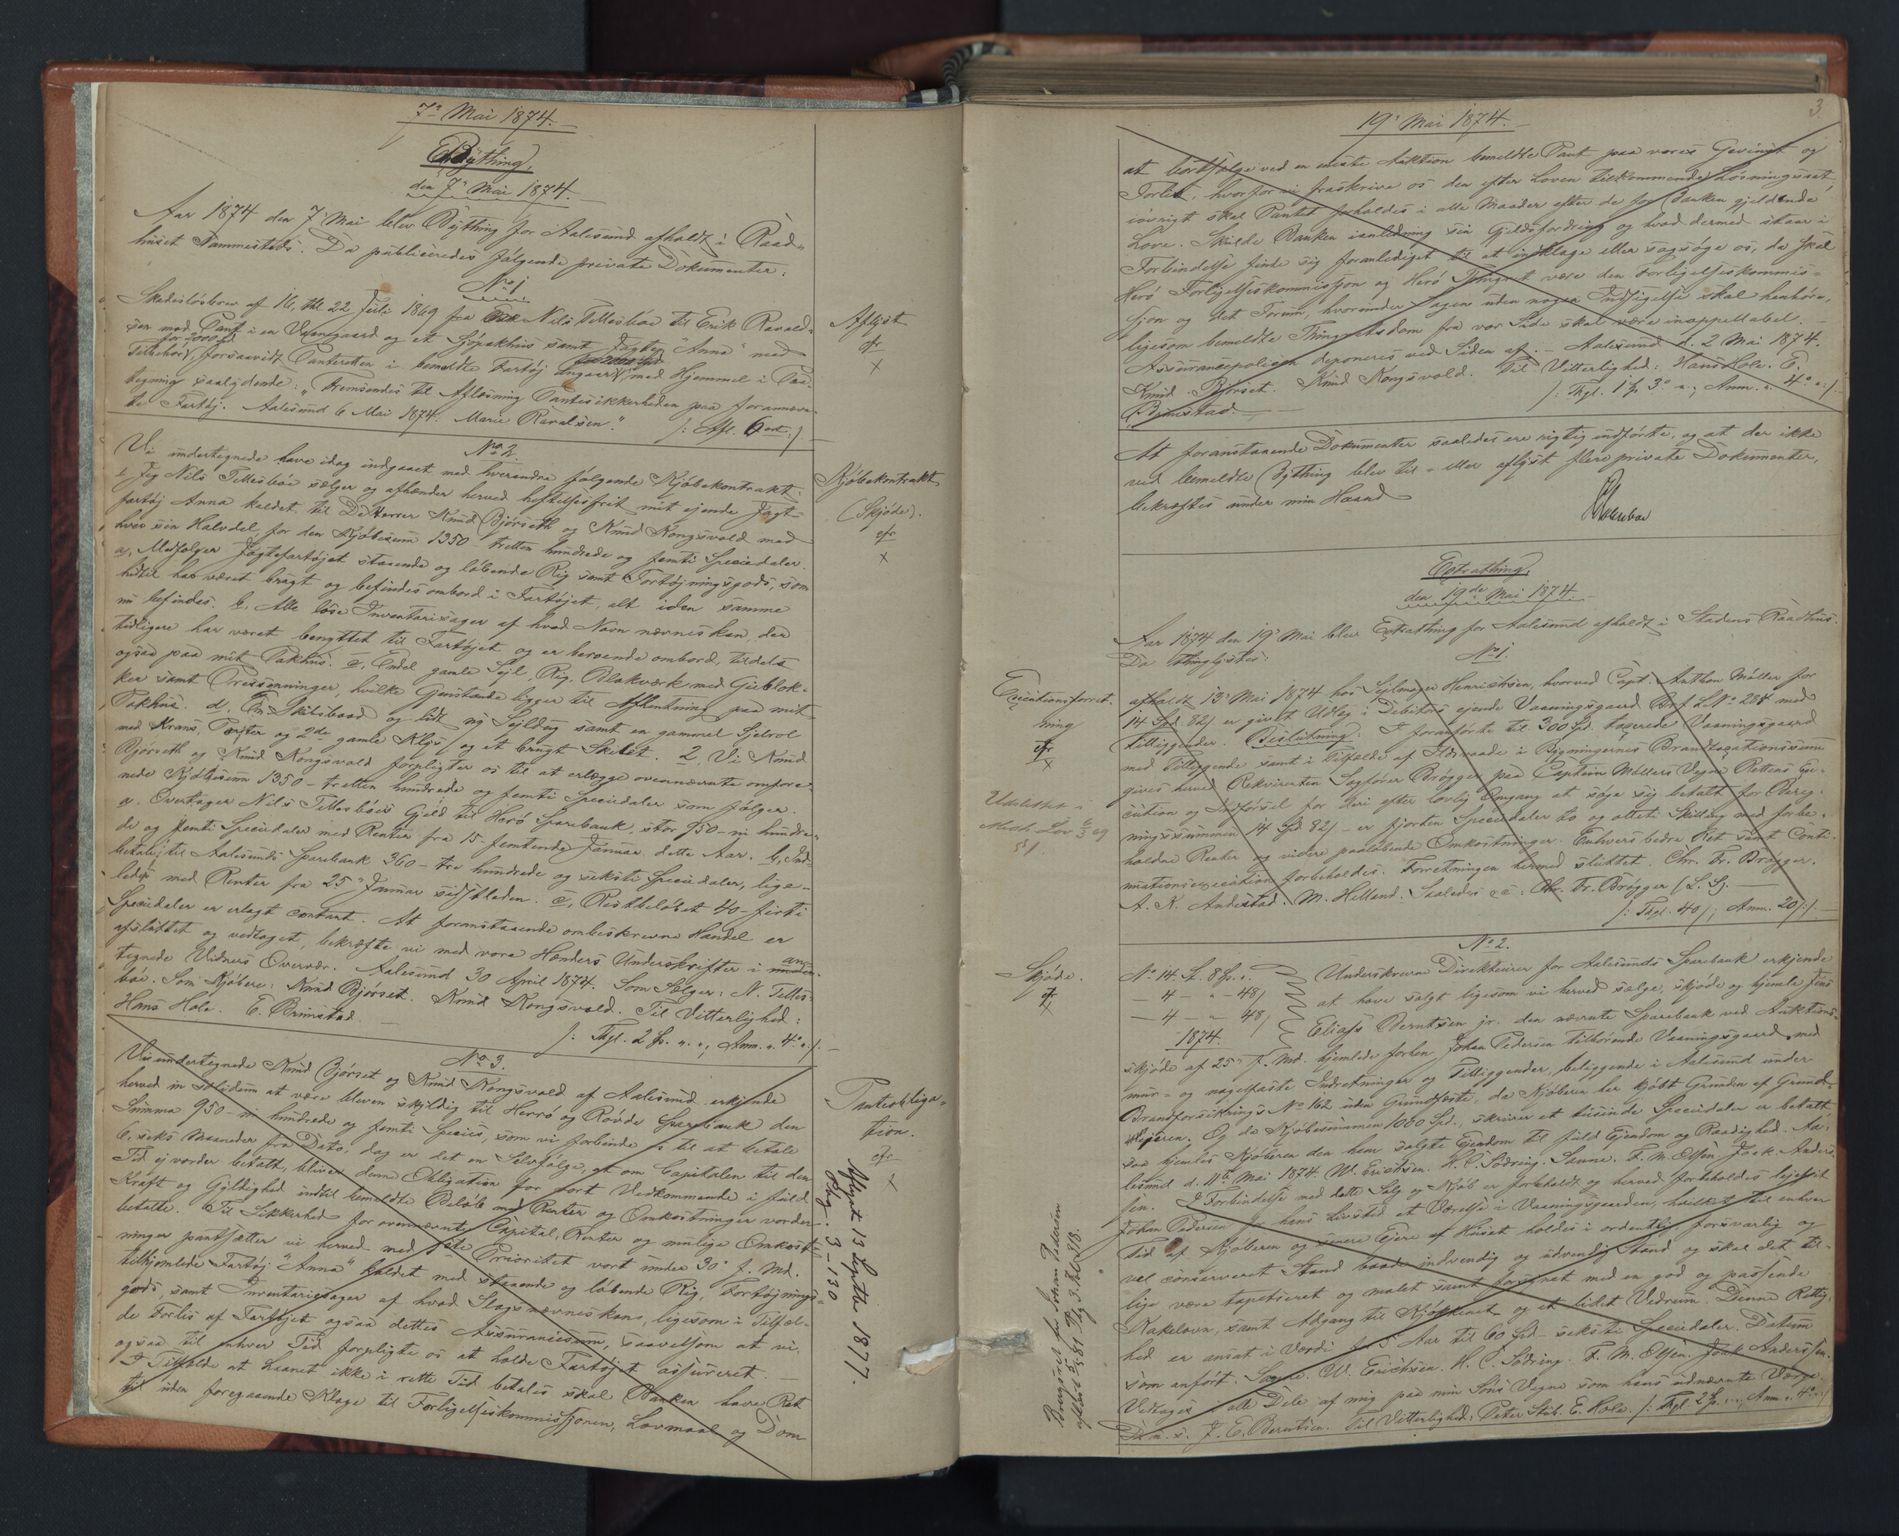 7de Mai 1874.
Bything
den 7' Mai 1874.
Aar 1874 den 7' Mai blev Bything for Aalesund afholdt i Raad-
huset sammesteds. Da publiceredes følgende private Dokumenter:
No 1
Skadesløsbrev af 16, thl. 22 Juli 1869 fra Nils Tillesbøe til Erik Ravald-
sen med Pant i en Vaaningsgaard og et Søpakhuus samt Jagten "Anna" med
Tilbehør, forsaavidt Panteretten i bemeldte Fartøj angaar, med Hjemmel i Paa-
tegning saalydende: "Fremsendes til Aflæsning Pantesikkerheden paa forannævn-
te Fartøj. Aalesund 6 Mai 1874. Marie Ravalsen."
/: Afl. 6 ort :/
Aflyst
cfr
x
No 2.
Vi undertegnede have idag indgaaet med hverandre følgende Kjøbekontrakt:
1, Jeg Nils Tillesbøe sælger og afhænder herved heftelsesfrit mit ejende Jagt-
fartøj Anna kaldet, til De Herrer Knud Bjørseth og Knud Kongsvold med
hver sin Halvdel for den Kjøbesum 1350 - tretten hundrede og femti Speciedaler.
a, Medfølger Jagtefartøjet staaende og løbende Rig samt Fortøjningsgods, som
hidtil har været brugt og befindes ombord i Fartøjet, alt i den samme
nu befindes. b, Alle løse Inventariesager af hvad Navn nævnes kan, der
tidligere har været benyttet til Fartøjet og er beroende ombord, tildels
ogsaa paa mit Pakhus. c, Endel gamle Sejl, Rig, Blokværk, med Gieblok-
ker samt Pressenninger, hvilke Gjenstande ligger til Afhentning paa mit
Pakhus. d, En Skibsbaad og lidt nÿ Sejldug samt en gammel
med og 2de gamle Klÿs, og et brugt Skilet. 2, Vi Knud
Bjørseth og Knud Kongsvold forpligter os til at erlægge ovennævnte omfore-
nede Kjøbesum 1350 - tretten hundrede og femti Speciedaler som følger.
a. Overtager Nils Tillesbøes Gjeld til Herø Sparebank, stor 950 - ni hundre-
de og femti Speciedaler med Renter fra 15 - femtende Januar dette Aar. b, Ind-
betales til Aalesunds Sparebank 360 - tre hundrede og seksti Speciedaler, lige-
ledes med Renter fra 25' Januar sidstleden. c, Restbeløbet 40 - firti
Speciedaler er erlagt contant. At foranstaaende ombeskrevne Handel er
afsluttet og vedtaget, bekræfte vi med vore Hænders Underskrifter i
tegnede Vidners Overvær. Aalesund 30 April 1874. Som Sælger: N. Tilles-
bøe. Som Kjøbere: Knud Bjørset. Knud Kongsvold. Til Vitterlighed:
Hans Hole. E. Brunstad.
/: Thgl. 2 ; Anm. :/
Kjøbekontrakt
(Skjøde).
cfr
x
No 3.
Vi undertegnede Knud Bjørset og Knud Kongsvold af Aalesund erkjende
herved in solidum at være bleven skyldig til Herrø og Røvde Sparebank den
Summa 950 - ni hundrede og femti Species, som vi forbinde os til at betale
6, seks Maaneder fra Dato, dog er det en Selvfølge, at om Capitalen til den
Tid ej vorder betalt, bliver denne Obligation for vort Vedkommende i fuld
Kraft og Gyldighed indtil bemeldte Beløb med Renter og Omkostninger vorder
betalte. Til Sikkerhed for ovennævnte Capital, Renter og mulige Omkost-
ninger pantsætter vi herved med 1ste Prioritet vort under 30' f. Md.
tilhjemlede Fartøj "Anna" kaldet med staaende og løbende Rig, Fortøjnings-
gods, samt Inventariesager af hvad Slags nævnes kan, ligesom i Tilfæl-
de Forlis af Fartøjet ogsaa dettes Assurancesum, saavelsom at vi
ogsaa til enhver Tid forpligte os at holde Fartøjet assureret.
I Tilfælde at Laanet ikke i rette Tid betales skal Banken have Ret
til uden foregaaende Klage til Forligelseskommissionen, Lovmaal og Dom
Panteobliga-
tion.
cfr
x
Aflyst 13 Septbr 1877.
Pbg. 3 - 130
3
19' Mai 1874.
at bortsælge ved en eneste Auktion bemeldte Pant paa vores Gevinst og
Forlis, hvorfor vi fraskrive os den efter Loven tilkommende Løsningsret,
iøvrigt skal Pantet forholdes i alle Maader efter de for Banken gjeldende
Love. Skulde Banken i anledning sin Gjeldsfordring og hvad dermed staar i
Forbindelse finde sig foranlediget til at indklage eller sagsøge os, da skal
Herø Forligelseskommission og Herø Thingret være den Forligelseskommis-
sion og det Forum, hvorunder Sagen uden nogen Indsigelse skal henhøre,
ligesom bemeldte Thingretsdom fra vor Side skal være inappellabel.
Assurancepolicen deponeres ved Siden af. Aalesund d. 2 Mai 1874.
Knud Bjørset. Knud Kongsvold. Til Vitterlighed: Hans Hole. E.
Brunstad.
/: Thgl. 1 ; Anm. :/
At foranstaaende Dokumenter saaledes ere rigtig indførte, og at der ikke
ved bemeldte Bything blev til- eller aflyst flere private Dokumenter,
bekræftes under min Haand
Extrathing
den 19de Mai 1874.
Aar 1874 den 19' Mai blev Extrathing for Aalesund afholdt i Stadens Raadhus.
Da thinglystes:
No 1.
afholdt 19' Mai 1874 hos Sejlmager Henrichsen, hvorved Capt. Anthon Møller for
14 Spd. 82/ er givet Udlæg i Debitors ejende Vaaningsgaard Brf L. No 285 med
Tilliggender. Beslutning: I foranførte til 300 Spd. taxerede Vaaningsgaard
med Tilliggende samt i Tilfælde af Ildsvaade i Bygningernes Brandtaxationssum
gives herved Rekvirenten Sagfører Brøgger paa Captein Møllers Vegne Rettens Exe-
cution og Indførsel for deri efter lovlig Omgang at søge sig betalt for Paareg-
ningssummen 14 Spd. 82/ - er fjorten Speciedaler to og otteti Skilling med forbe-
holdne Renter og videre paaløbende Omkostninger. Enhvers bedre Ret samt Conti-
nuationsexecution forbeholdes. Forretningen hermed sluttet. Chr. Fr. Brøgger.
A. K. Andestad. M. Helland. Saaledes Chr. Fr. Brøgger (L.S.).
/: Thgl. 40/; Anm. 20/ :/
Executionsforret-
ning
cfr
x
Udslettet i
Medh. Lov
No 2.
Underskrevne Direkteurer for Aalesunds Sparebank erkjende
at have solgt ligesom vi herved sælge, skjøde og hjemle Jens
Eliass Berntsen jr. den nævnte Sparebank ved Auktions-
1874.
skjøde af 25' f. Md. hjemlede forhen Johan Pedersen tilhørende Vaaningsgaard med
mur- og nagelfaste Indretninger og Tilliggender, beliggende i Aalesund under
Brandforsikrings No 162 uden Grundfæste, da Kjøberen har kjøbt Grunden af Grund-
ejeren. Og da Kjøbesummen 1000 Spd., skriver et tusinde Speciedaler er betalt,
saa hjemles Kjøberen den ham solgte Ejendom til fuld Ejendom og Raadighed. Aa-
lesund d. 11te Mai 1874. W. Erichsen. H. C. Sødring. Sanne. F. M. Olsen. Jock Anders-
sen. I Forbindelse med dette Salg og Kjøb er forbeholdt og herved forbeholdes
Johan Pedersen for hans Livstid et Værelse i Vaaningsgaarden, hvilket til enhver
Tid af Kjøberen og senere Ejere af Huset holdes i ordentlig, forsvarlig og
vel conserveret Stand baade indvendig og udvendig Stand og skal det til-
lige være tapetseret og malet samt forsynet med en god og passende
Kakelovn, samt Adgang til Kjøkkenet og et lidet Vedrum. Denne Rettig-
hed er ansat i Værdi for 5 Aar til 60 Spd - seksti Speciedaler. Datum
som anført. Sanne. W. Erichsen. H. C. Sødring. F. M. Olsen. Jock Anderssen.
Vedtages i alle Dele af mig paa min Søns Vegne som hans udnævnte Værge.
D. u. s. J. E. Berntsen. Til Vitterlighed: Peter Stub. E. Hole. /: Thgl 2 ; Anm. :/
Skjøde.
cfr
x
Brugsret for Johan Pedersen